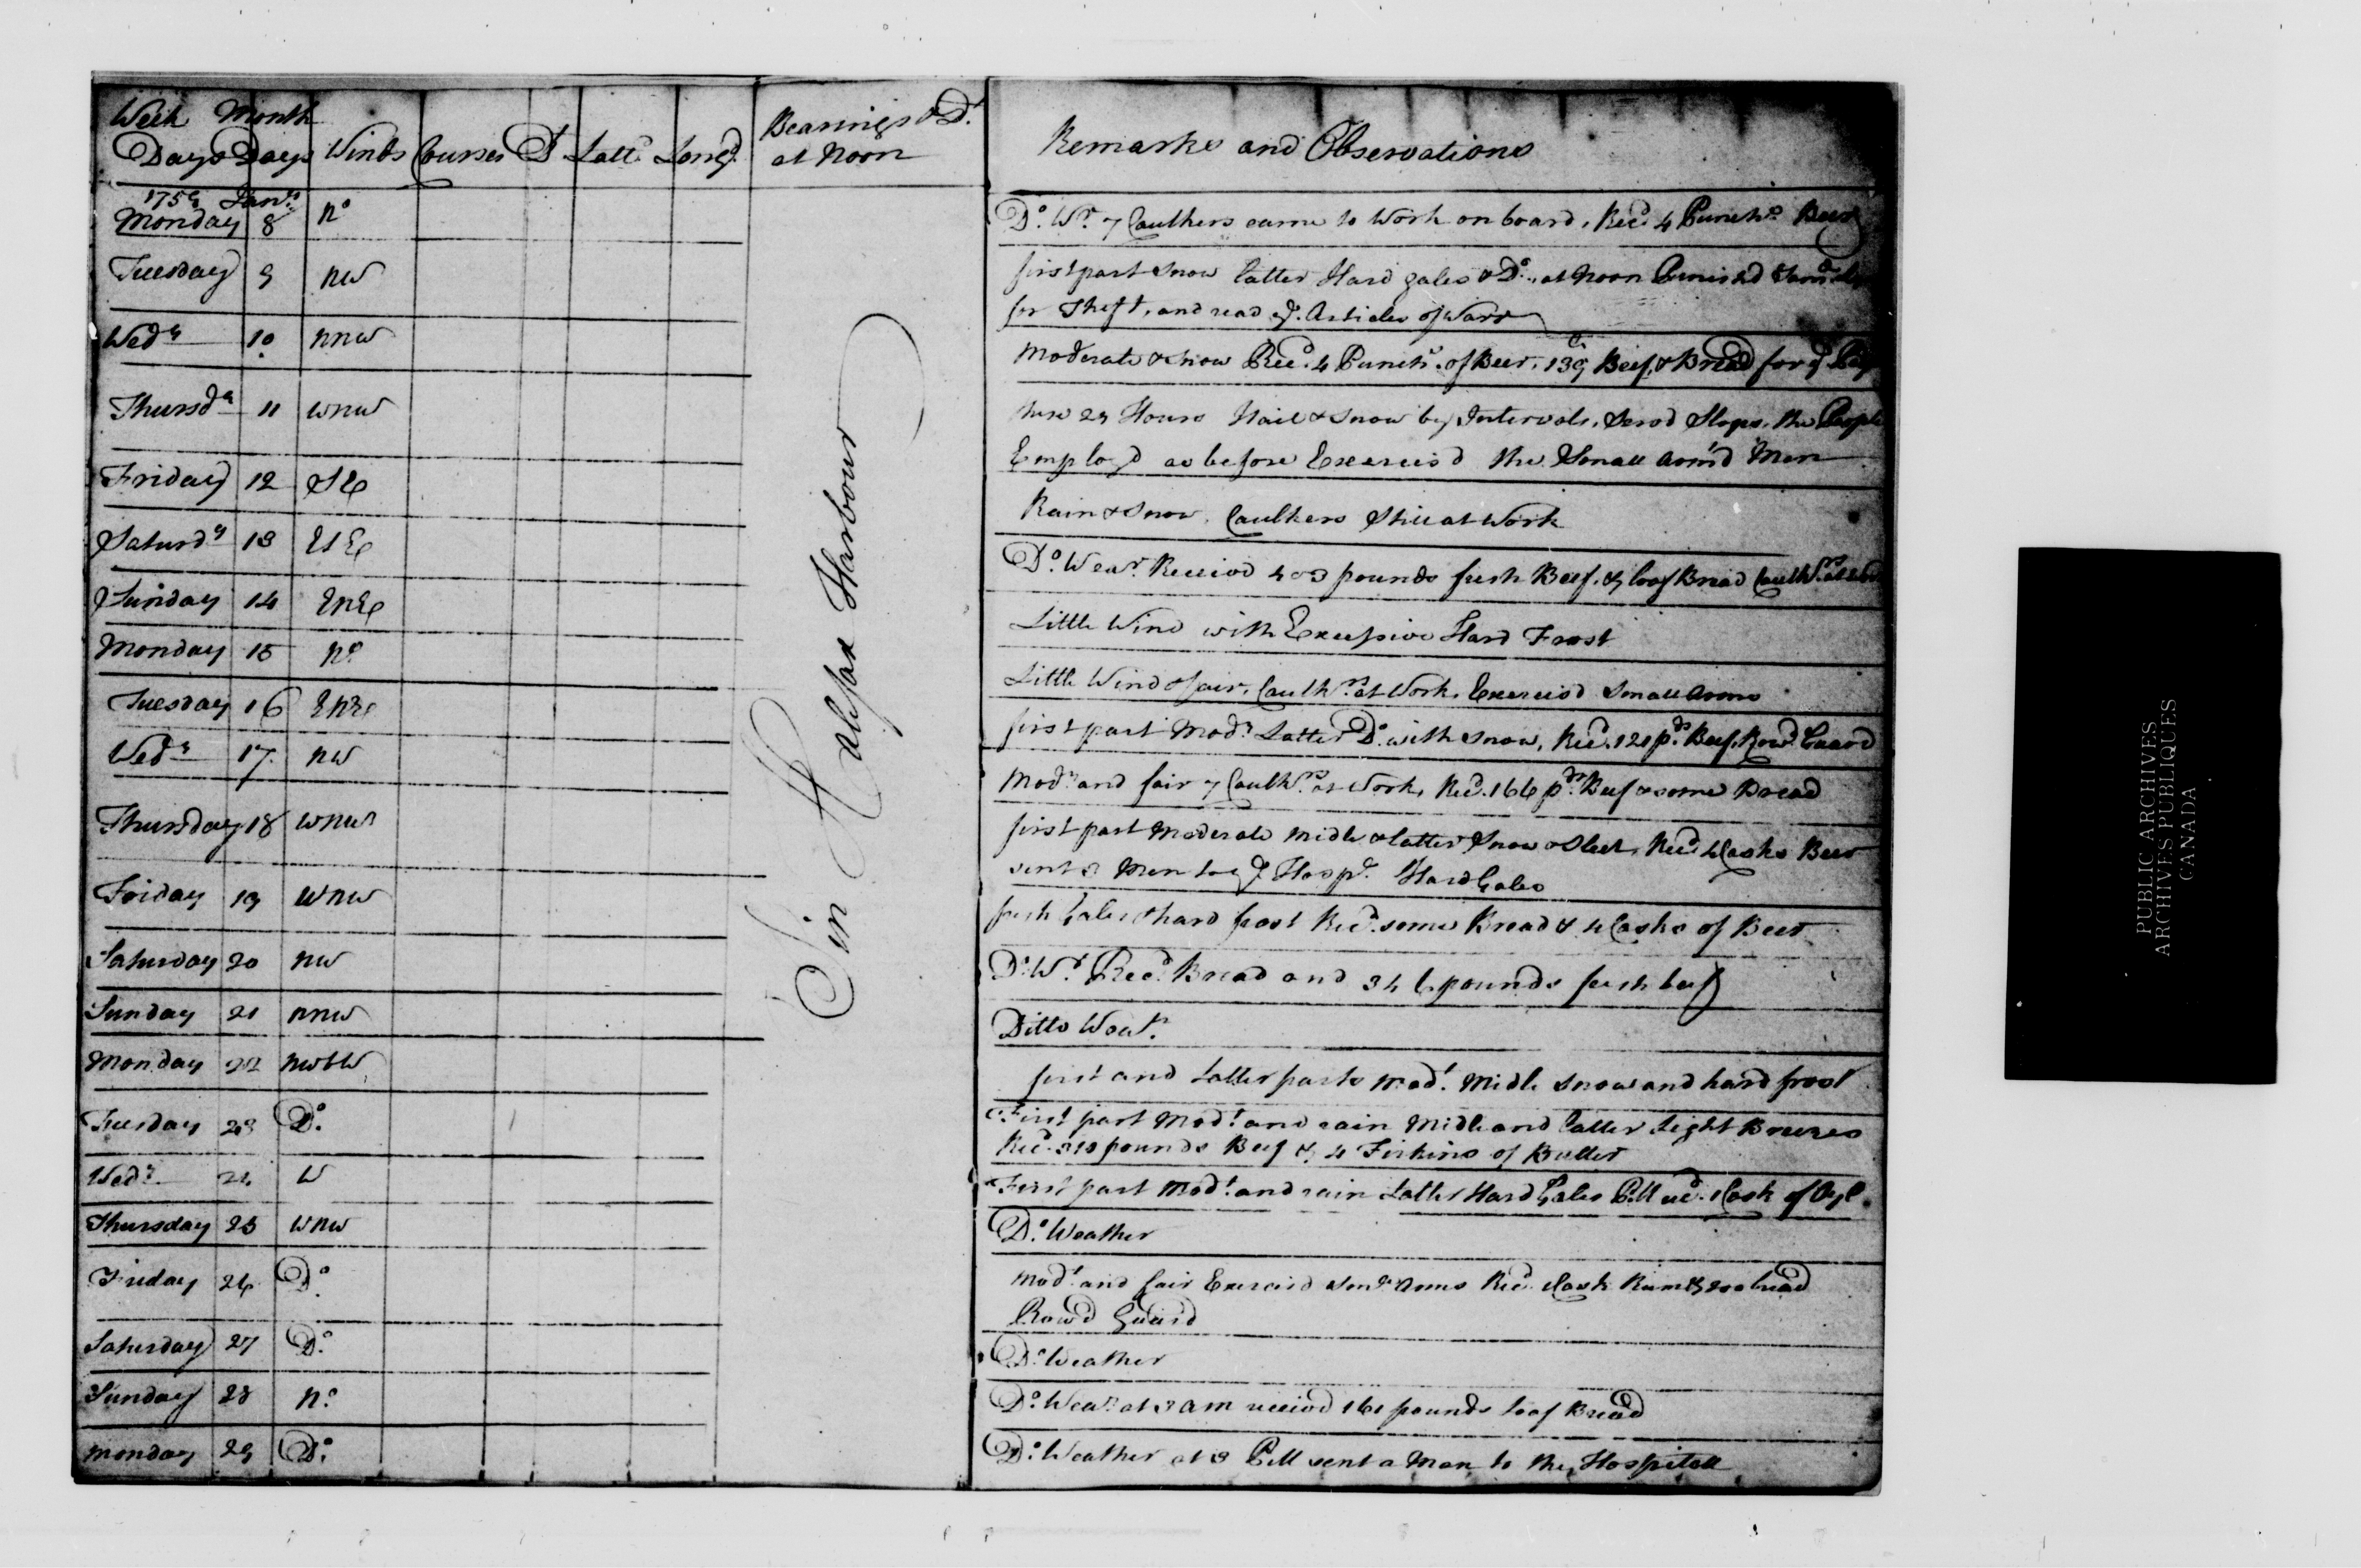 Week Month Bearings & D.s
Days Days Winds Courses D.t Latt.d Long.d at Noon Remarks and Observations
1759 Jan.y
Monday 8 N.o D.o W.r 7 Caulkers came to Work on board, Rec.d 4 Punch.s Beer
Tuesday 9 NW first part Snow latter Hard gales & D.o, at Noon Punished
for Theft, and read y.e Articles of Warr
Wed.y 10 NNW Moderate & Snow Rec.d 4 Punch.s of Beer, 139 Beef, & Bread for y.e
Thursd.y 11 WNW these 24 Hours Hail & Snow by Intervals, Serv'd Slops, the People
Employ'd as before Exercis'd the Small Arm'd Men
Friday 12 SE Rain & Snow, Caulkers Still at Work
Saturd.y 13 ESE D.o Wea.r Receivd 403 pounds fresh Beef, & loaf Bread Caulk.rs at
Sunday 14 ENE Little Wind with Excessive Hard Frost
Monday 15 N.o Little Wind & fair, Caulk.rs at Work, Exercis'd Small Arms
Tuesday 16 ENE first part Mod.t Latter D.o with Snow, Rec.d 121 p.ds Beef, Row'd Guard
Wed.y 17 NW Mod.t and fair 7 Caulk.rs at Work, Rec.d 166 p.ds Beef & some Bread
Thursday 18 WNW first part Moderate Midle & latter Snow & Sleet, Rec.d 4 Casks Beer
sent 3 Men to y.e Hosp.l Hard Gales
Friday 19 WNW fresh Gales & hard frost Rec.d some Bread & 4 Casks of Beer
Saturday 20 NW D.o W.r Rec.d Bread and 346 pounds fresh beef
Sunday 21 NNW Ditto Weat.r
Monday 22 NWbW first and Latter parts Mod.t Midle snow and hard frost
Tuesday 23 D.o First part Mod.t and rain Midle and latter Light Breezes
Rec.d 310 pounds Beef & 4 Firkins of Butter
Wed.y 24 W First part Mod.t and rain Latter Hard Gales PM rec.d 1 Cask of Oyl
Thursday 25 WNW D.o Weather
Friday 26 D.o Mod.t and fair Exercisd Sm.l Arms Rec.d 1 Cask Rum & 200 bread
Row'd Guard
Saturday 27 D.o D.o Weather
Sunday 28 N.o D.o Wea.r at 3 am receivd 161 pounds loaf Bread
Monday 29 D.o D.o Weather at 3 PM sent a Man to the Hospitall
In Halifax Harbour
PUBLIC ARCHIVES
ARCHIVES PUBLIQUES
CANADA